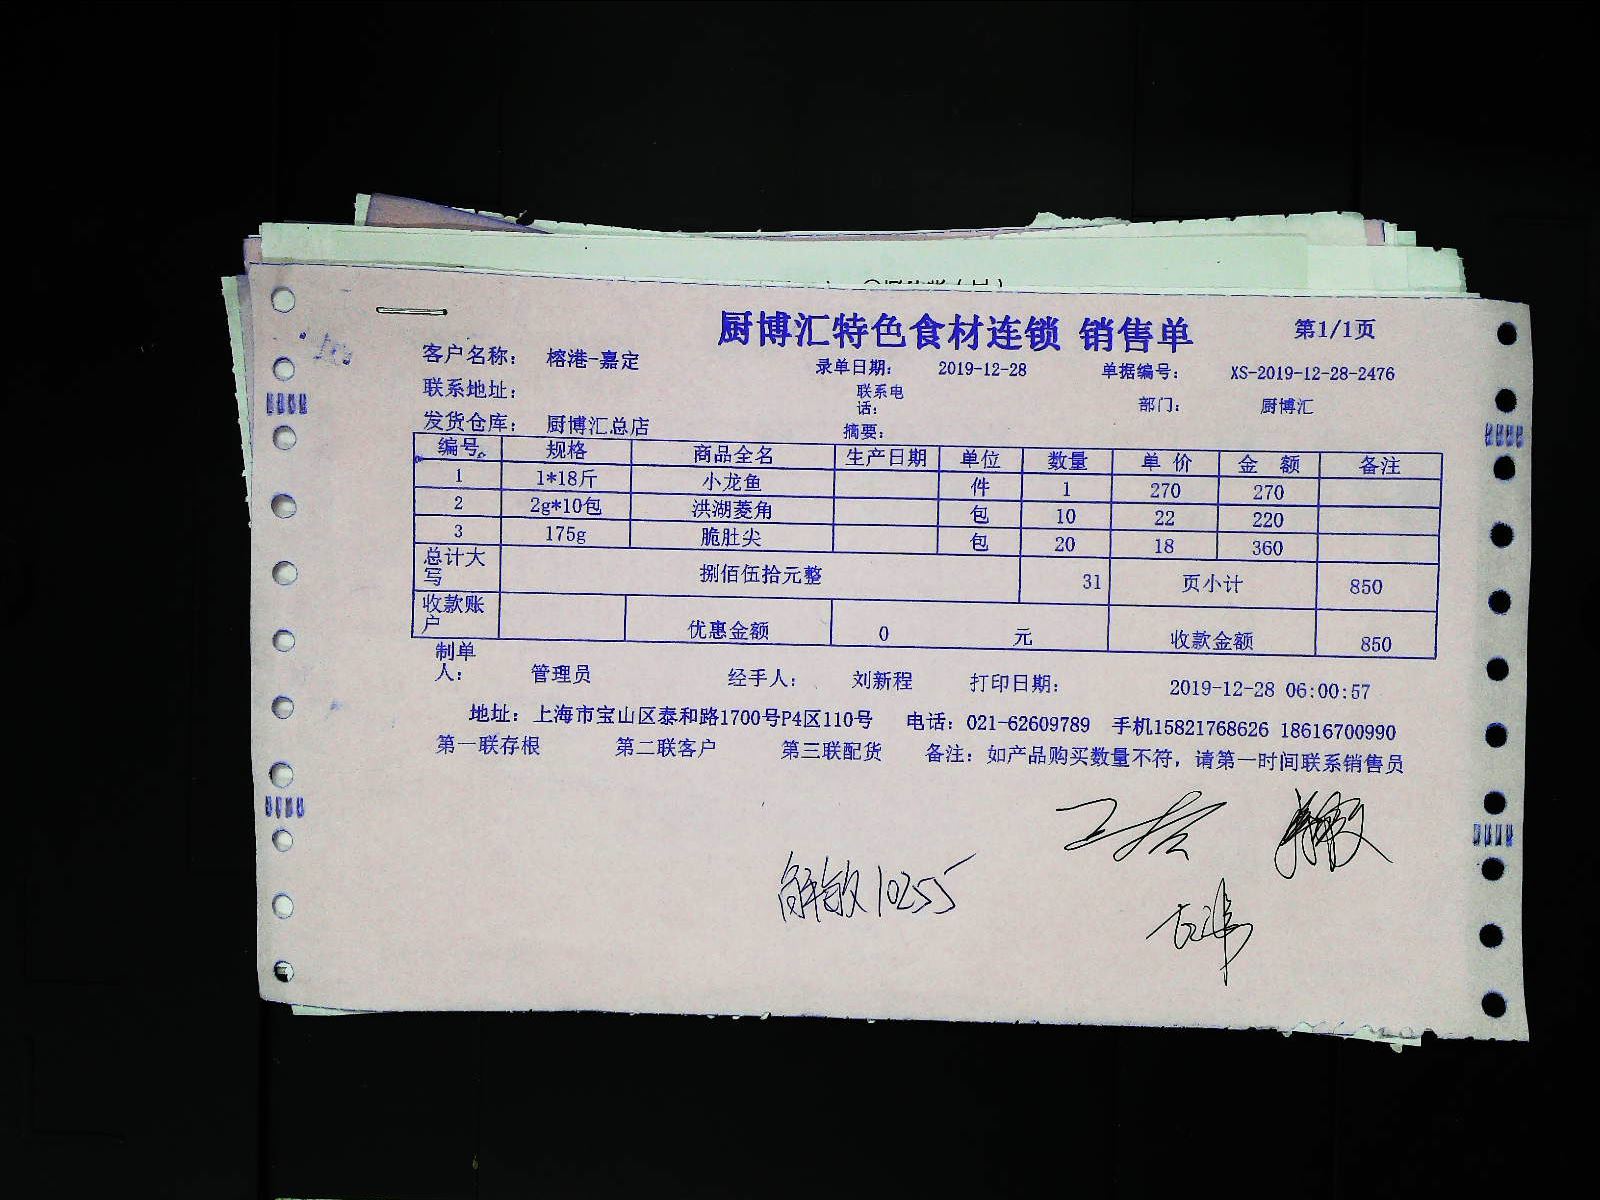 厨博汇特色食材连锁 销售单 第1/1页
客户名称： 榕港-嘉定 录单日期： 2019-12-28 单据编号： XS-2019-12-28-2476
联系地址： 联系电话： 部门： 厨博汇
发货仓库： 厨博汇总店 摘要：
编号 规格 商品全名 生产日期 单位 数量 单 价 金 额 备注
1 1*18斤 小龙鱼 件 1 270 270
2 2g*10包 洪湖菱角 包 10 22 220
3 175g 脆肚尖 包 20 18 360
总计大写 捌佰伍拾元整 31 页小计 850
收款账户 优惠金额 0 元 收款金额 850
制单人： 管理员 经手人： 刘新程 打印日期： 2019-12-28 06:00:57
地址：上海市宝山区泰和路1700号P4区110号 电话：021-62609789 手机15821768626 18616700990
第一联存根 第二联客户 第三联配货 备注：如产品购买数量不符，请第一时间联系销售员
10255